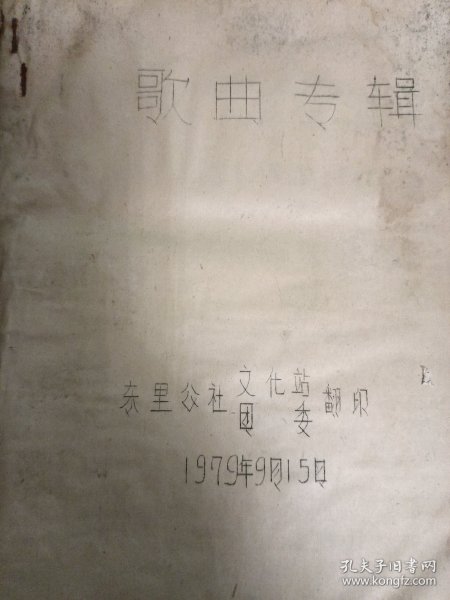 歌曲专辑
东里公社文化站团委翻印
1979年9月15日
孔夫子旧书网
www.kongfz.com